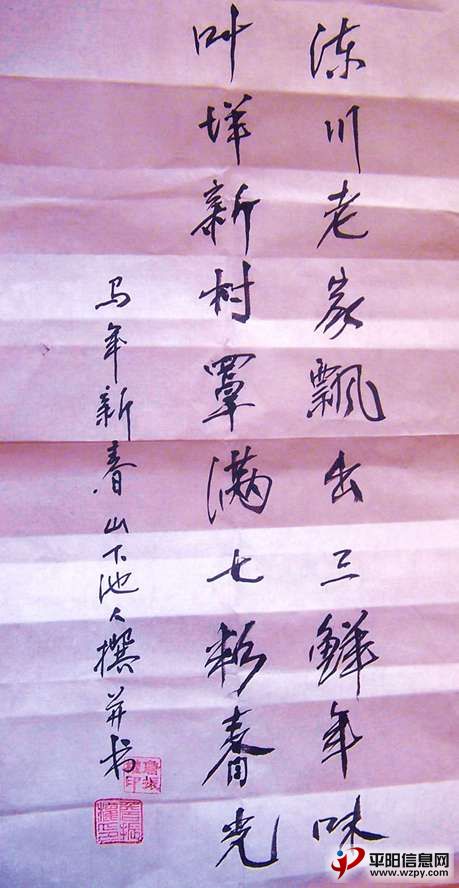 川老家飘出三鲜年味
叶垟新村罩满七彩春光
马年新春山下池人撰并书
平阳信息网
www.wzpy.com